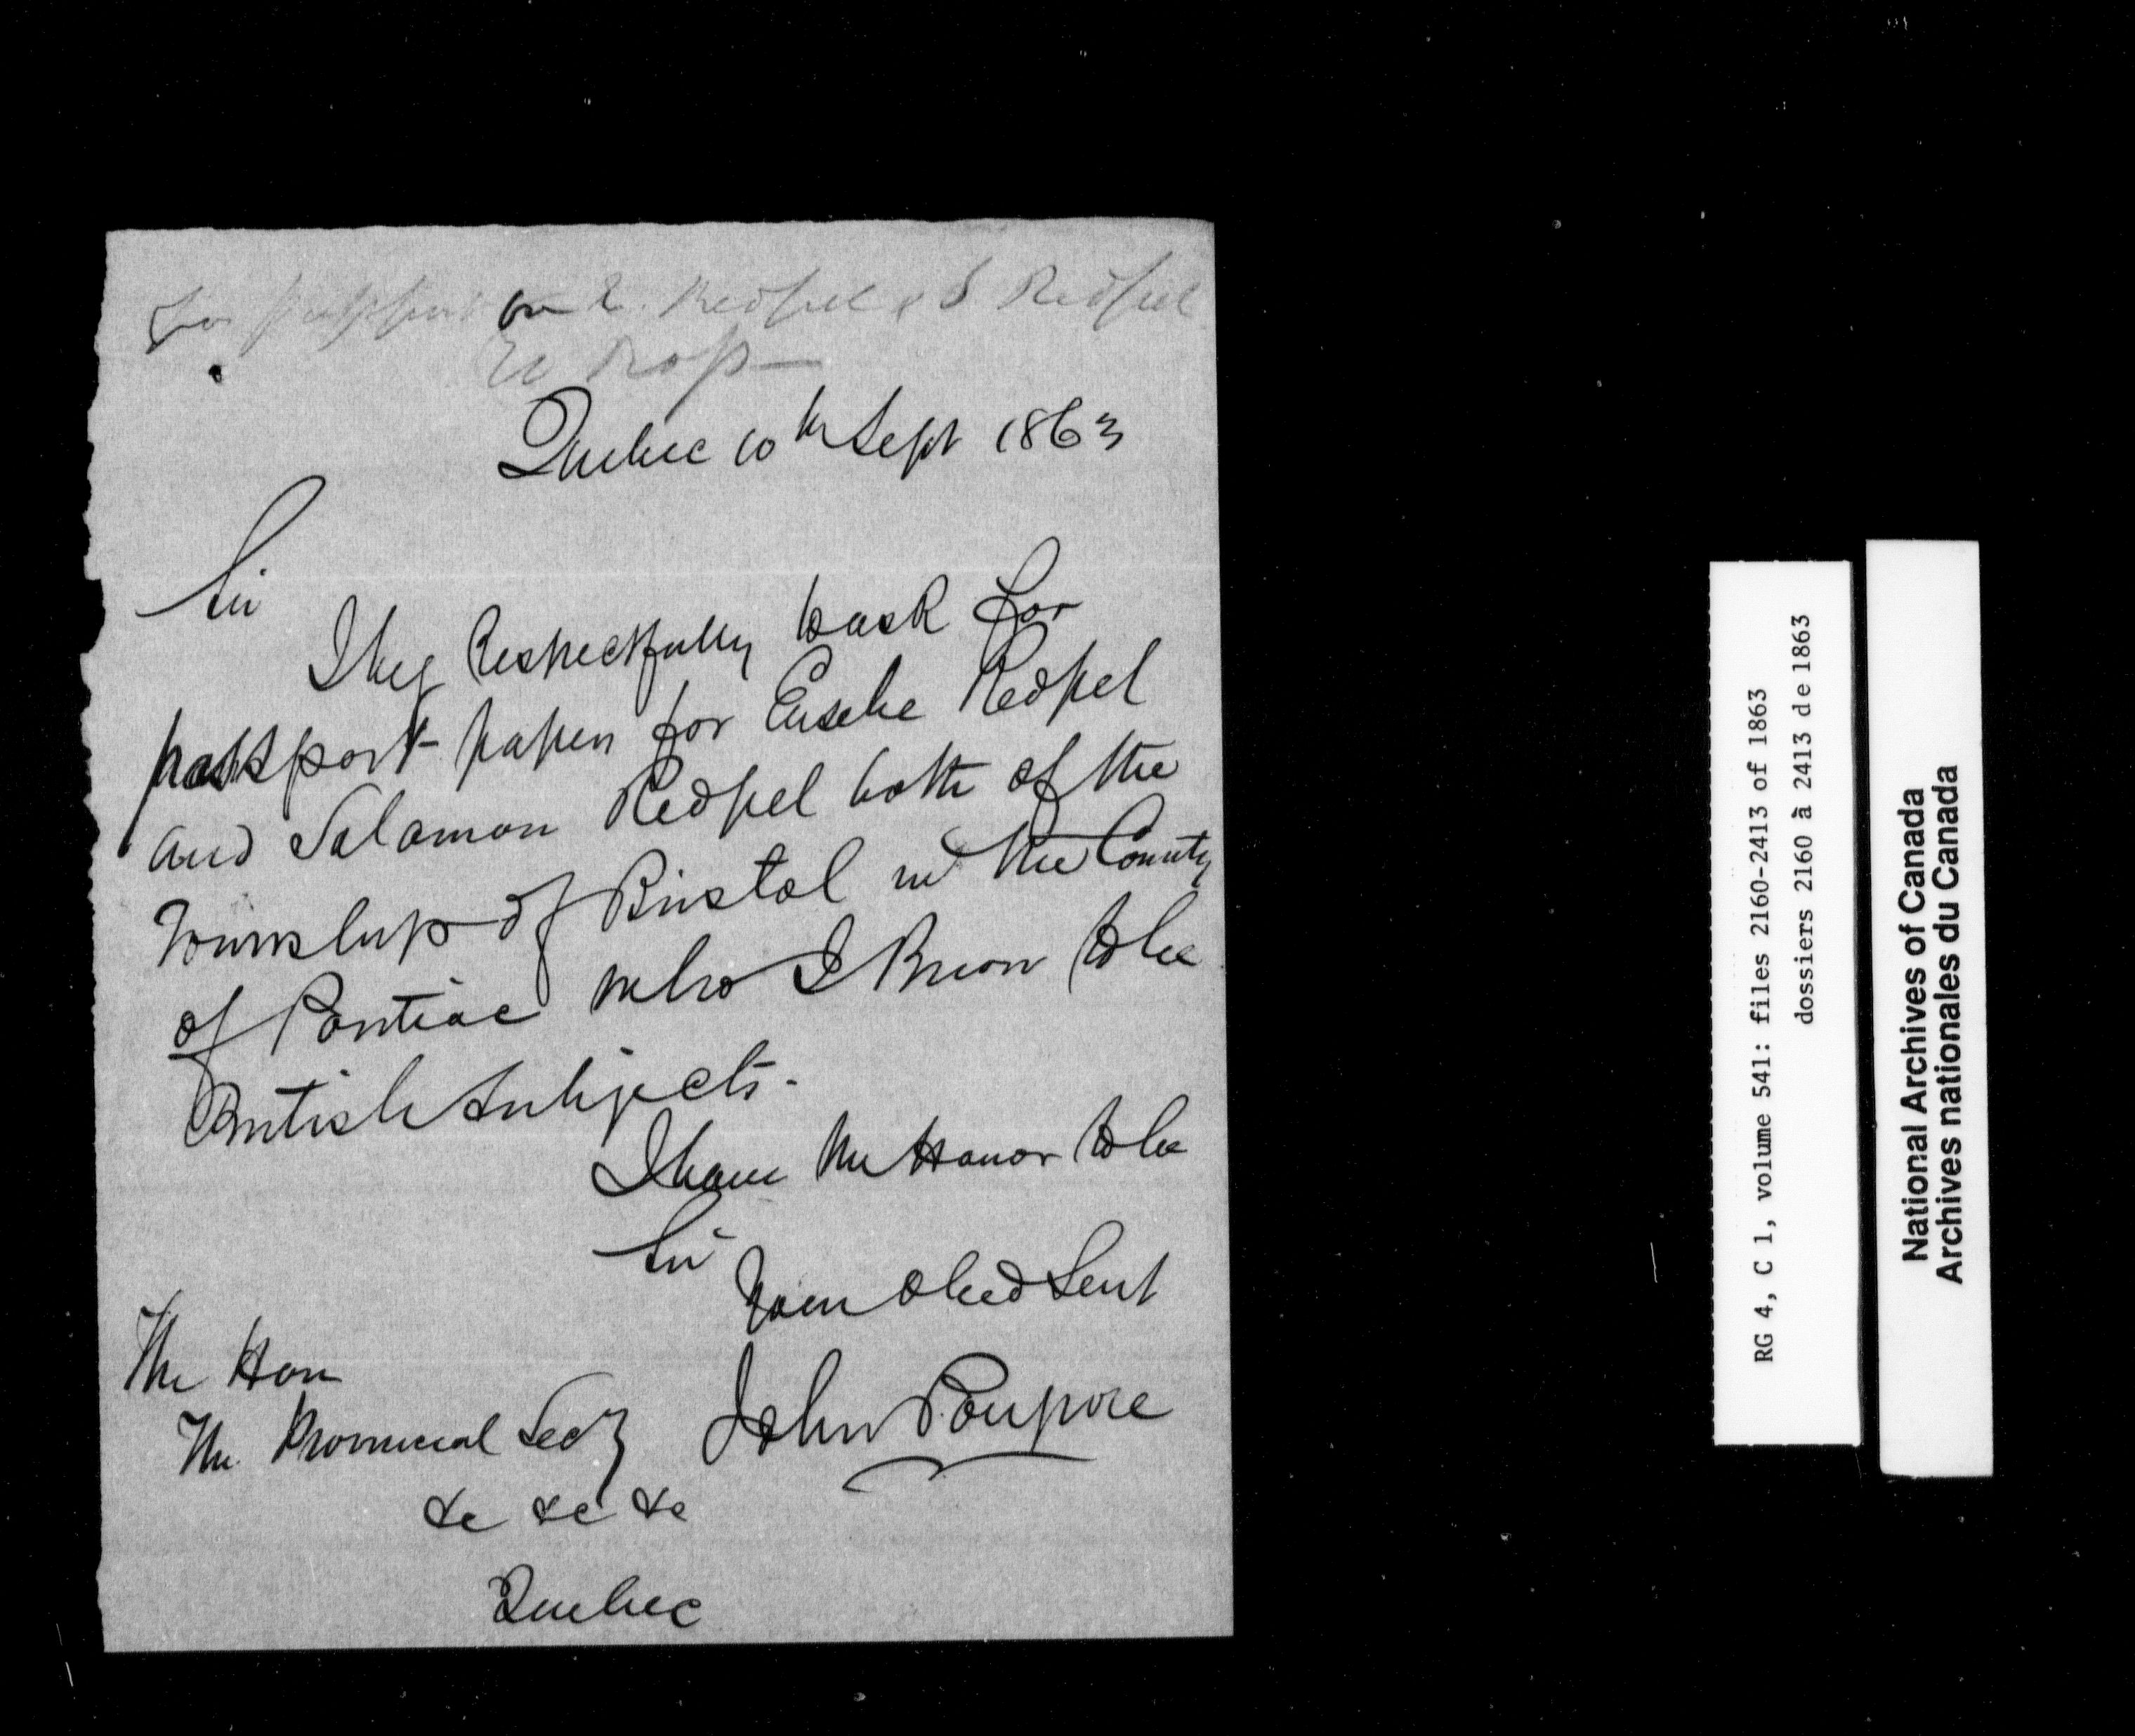 for passport E. Redpel & S Redpel
Quebec 10th Sept 1863
Sir
I beg Respectfully to ask for
passport papers for Eusebe Redpel
and Salamon Redpel both of the
Township of Bristol in the County
of Pontiac who I Know to be
British Subjects.
I have the Honor to be
Sir
Your Obed Sert
John Poupore
The Hon
The Provincial Secy
&c &c &c
Quebec
RG 4, C 1, volume 541: files 2160-2413 of 1863
dossiers 2160 à 2413 de 1863
National Archives of Canada
Archives nationales du Canada